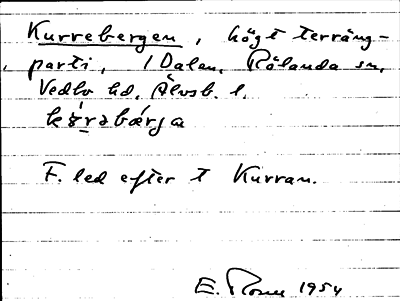 Kurrebergen, högt terräng-
parti, i Dalen, Rålanda sn,
Vedbo hd, Älvsb. l.
F. led efter t Kurran.
E. 1954